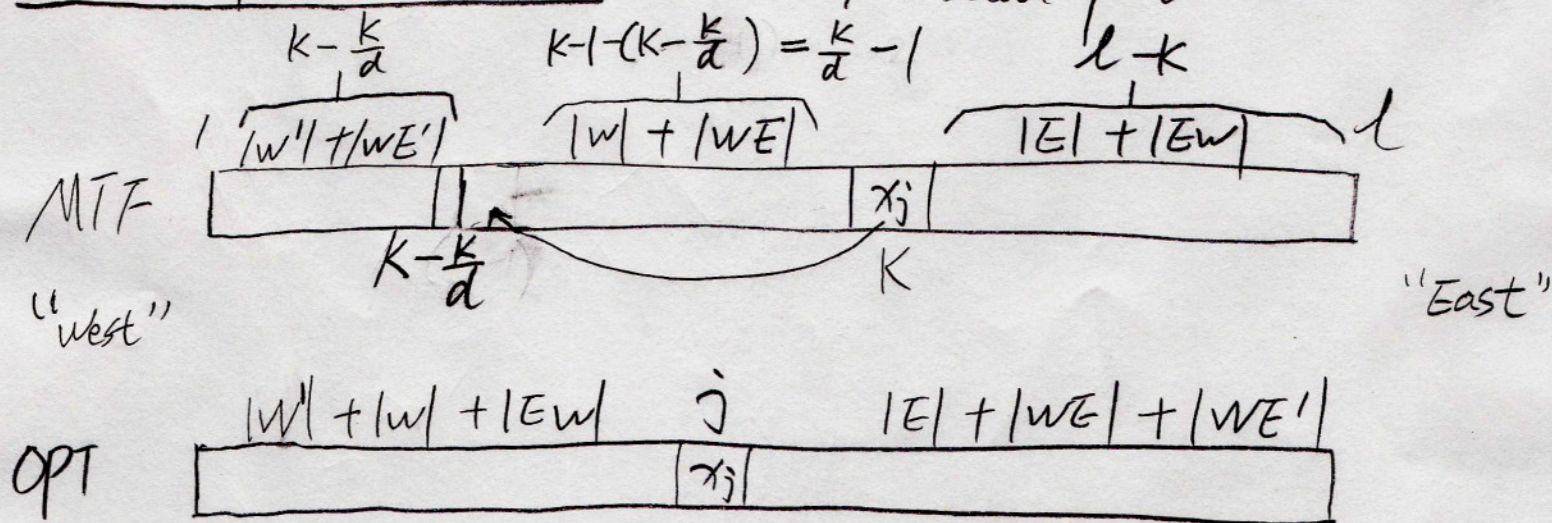 K - K/d    K-1-(K - K/d) = K/d - 1    l - K
1 |W'| + |WE'|    |W| + |WE|    |E| + |EW| l
MTF xj
K - K/d    K
"West" "East"
|W'| + |W| + |EW|    j    |E| + |WE| + |WE'|
OPT xj